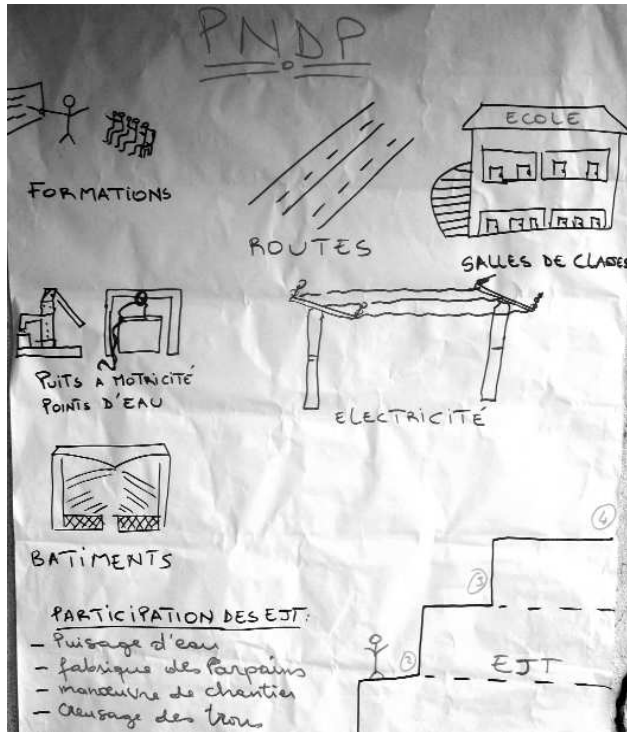 PNDP
FORMATIONS
ECOLE
ROUTES
SALLES DE CLASSES
PUITS A MOTRICITÉ
POINTS D'EAU
ELECTRICITÉ
BATIMENTS
PARTICIPATION DES EJT:
- Puisage d'eau
- fabrique des Parpains
- manœuvre de chantier
- creusage des trous
4
3
2
EJT